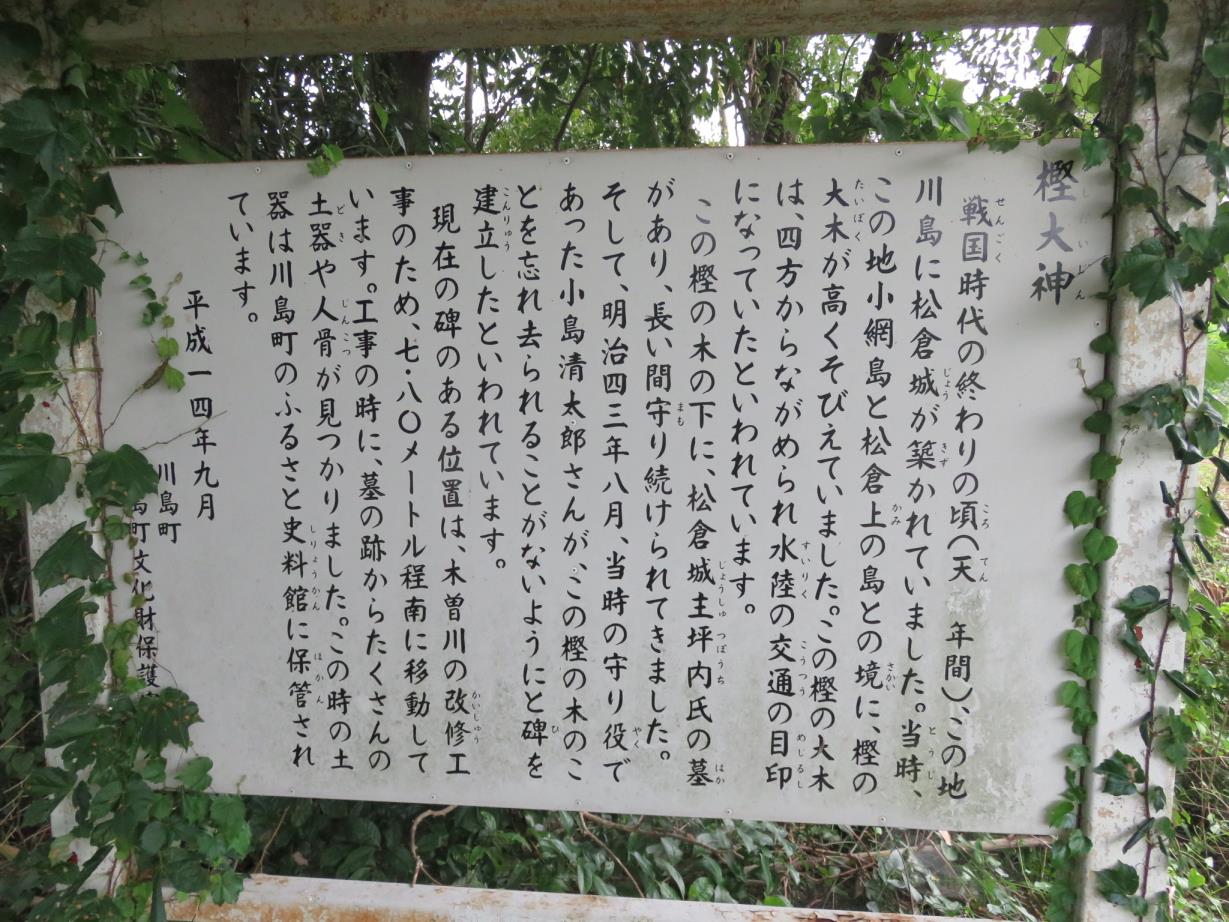 樫大神
戦国時代の終わりの頃(天　年間)、この地
川島に松倉城が築かれていました。当時、
この地小網島と松倉上の島との境に、樫の
大木が高くそびえていました。この樫の大木
は、四方からながめられ水陸の交通の目印
になっていたといわれています。
この樫の木の下に、松倉城主坪内氏の墓
があり、長い間守り続けられてきました。
そして、明治四三年八月、当時の守り役で
あった小島清太郎さんが、この樫の木のこ
とを忘れ去られることがないようにと碑を
建立したといわれています。
現在の碑のある位置は、木曽川の改修工
事のため、七・八〇メートル程南に移動して
います。工事の時に、墓の跡からたくさんの
土器や人骨が見つかりました。この時の土
器は川島町のふるさと史料館に保管され
ています。
平成一四年九月
川島町
島町文化財保護